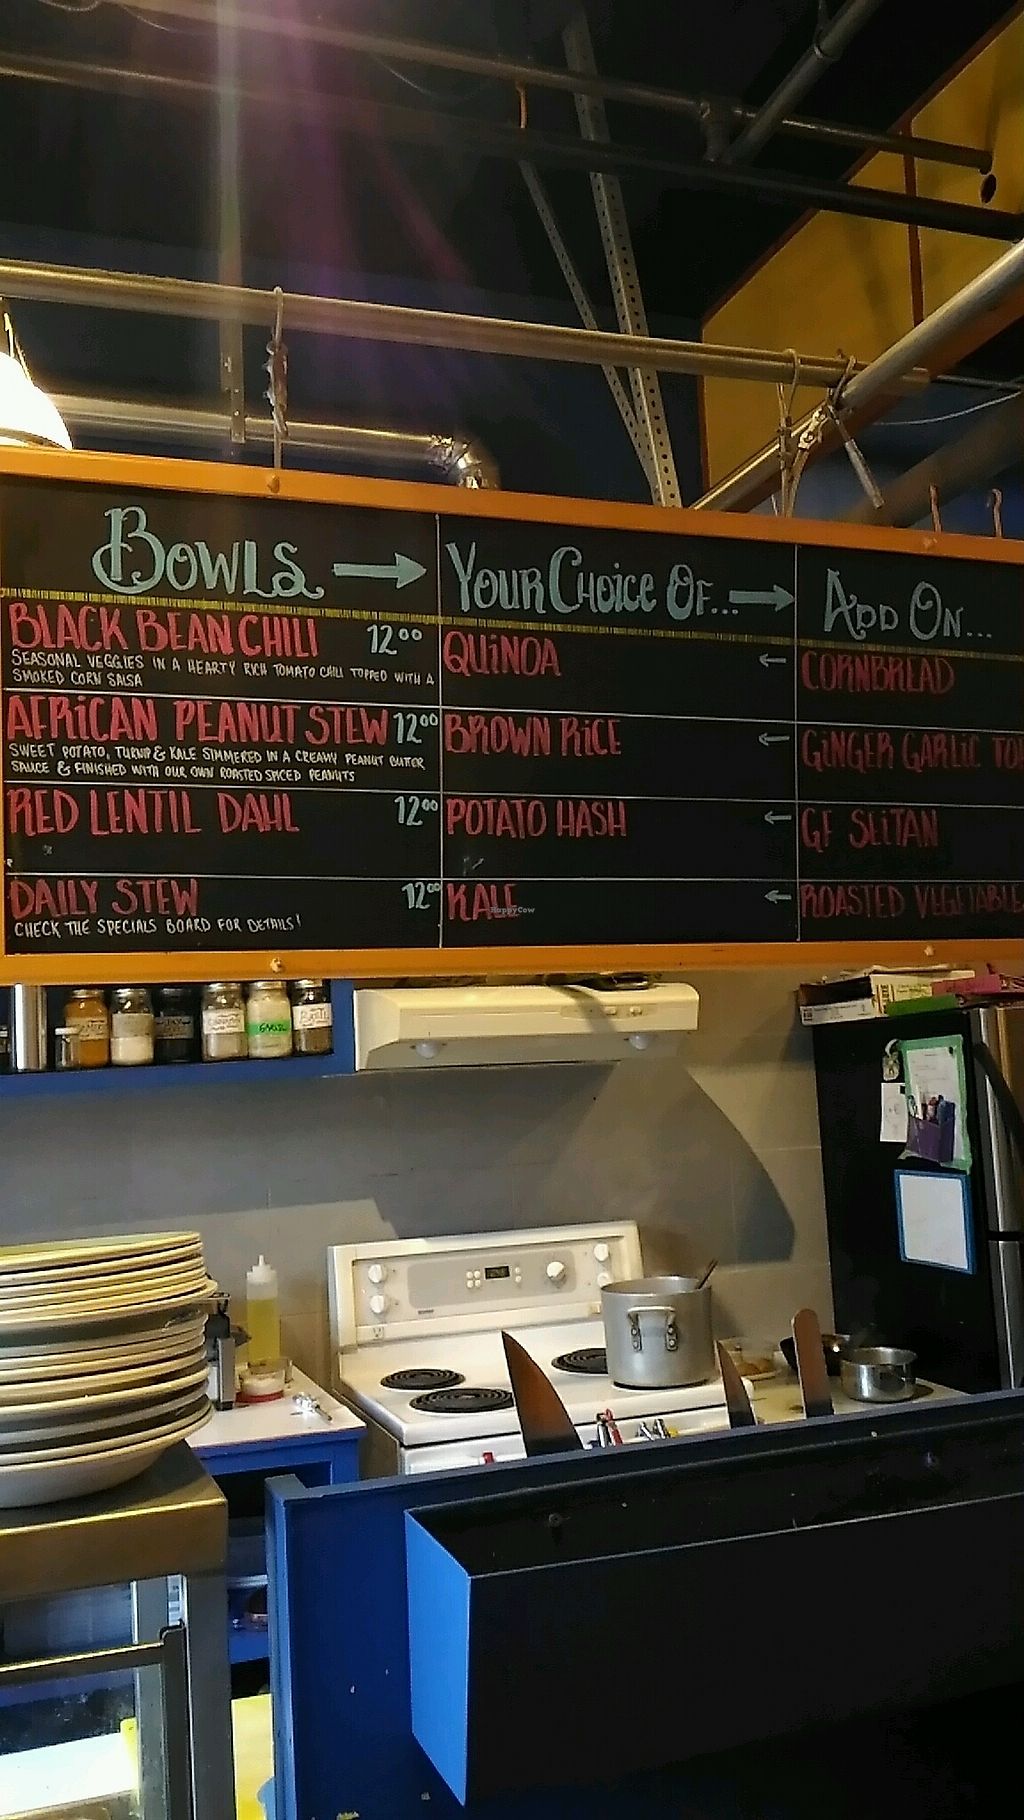 BOWLS
BLACK BEAN CHILI 12.00
SEASONAL VEGGIES IN A HEARTY RICH TOMATO CHILI TOPPED WITH A
SMOKED CORN SALSA
AFRICAN PEANUT STEW 12.00
SWEET POTATO, TURNIP & KALE SIMMERED IN A CREAMY PEANUT BUTTER
SAUCE & FINISHED WITH OUR OWN ROASTED SPICED PEANUTS
RED LENTIL DAHL 12.00
DAILY STEW 12.00
CHECK THE SPECIALS BOARD FOR DETAILS!
YOUR CHOICE OF...
QUINOA
BROWN RICE
POTATO HASH
KALE
HappyCow
ADD ON...
CORNBREAD
GINGER GARLIC
GF SEITAN
ROASTED VEGETABLE
GARLIC